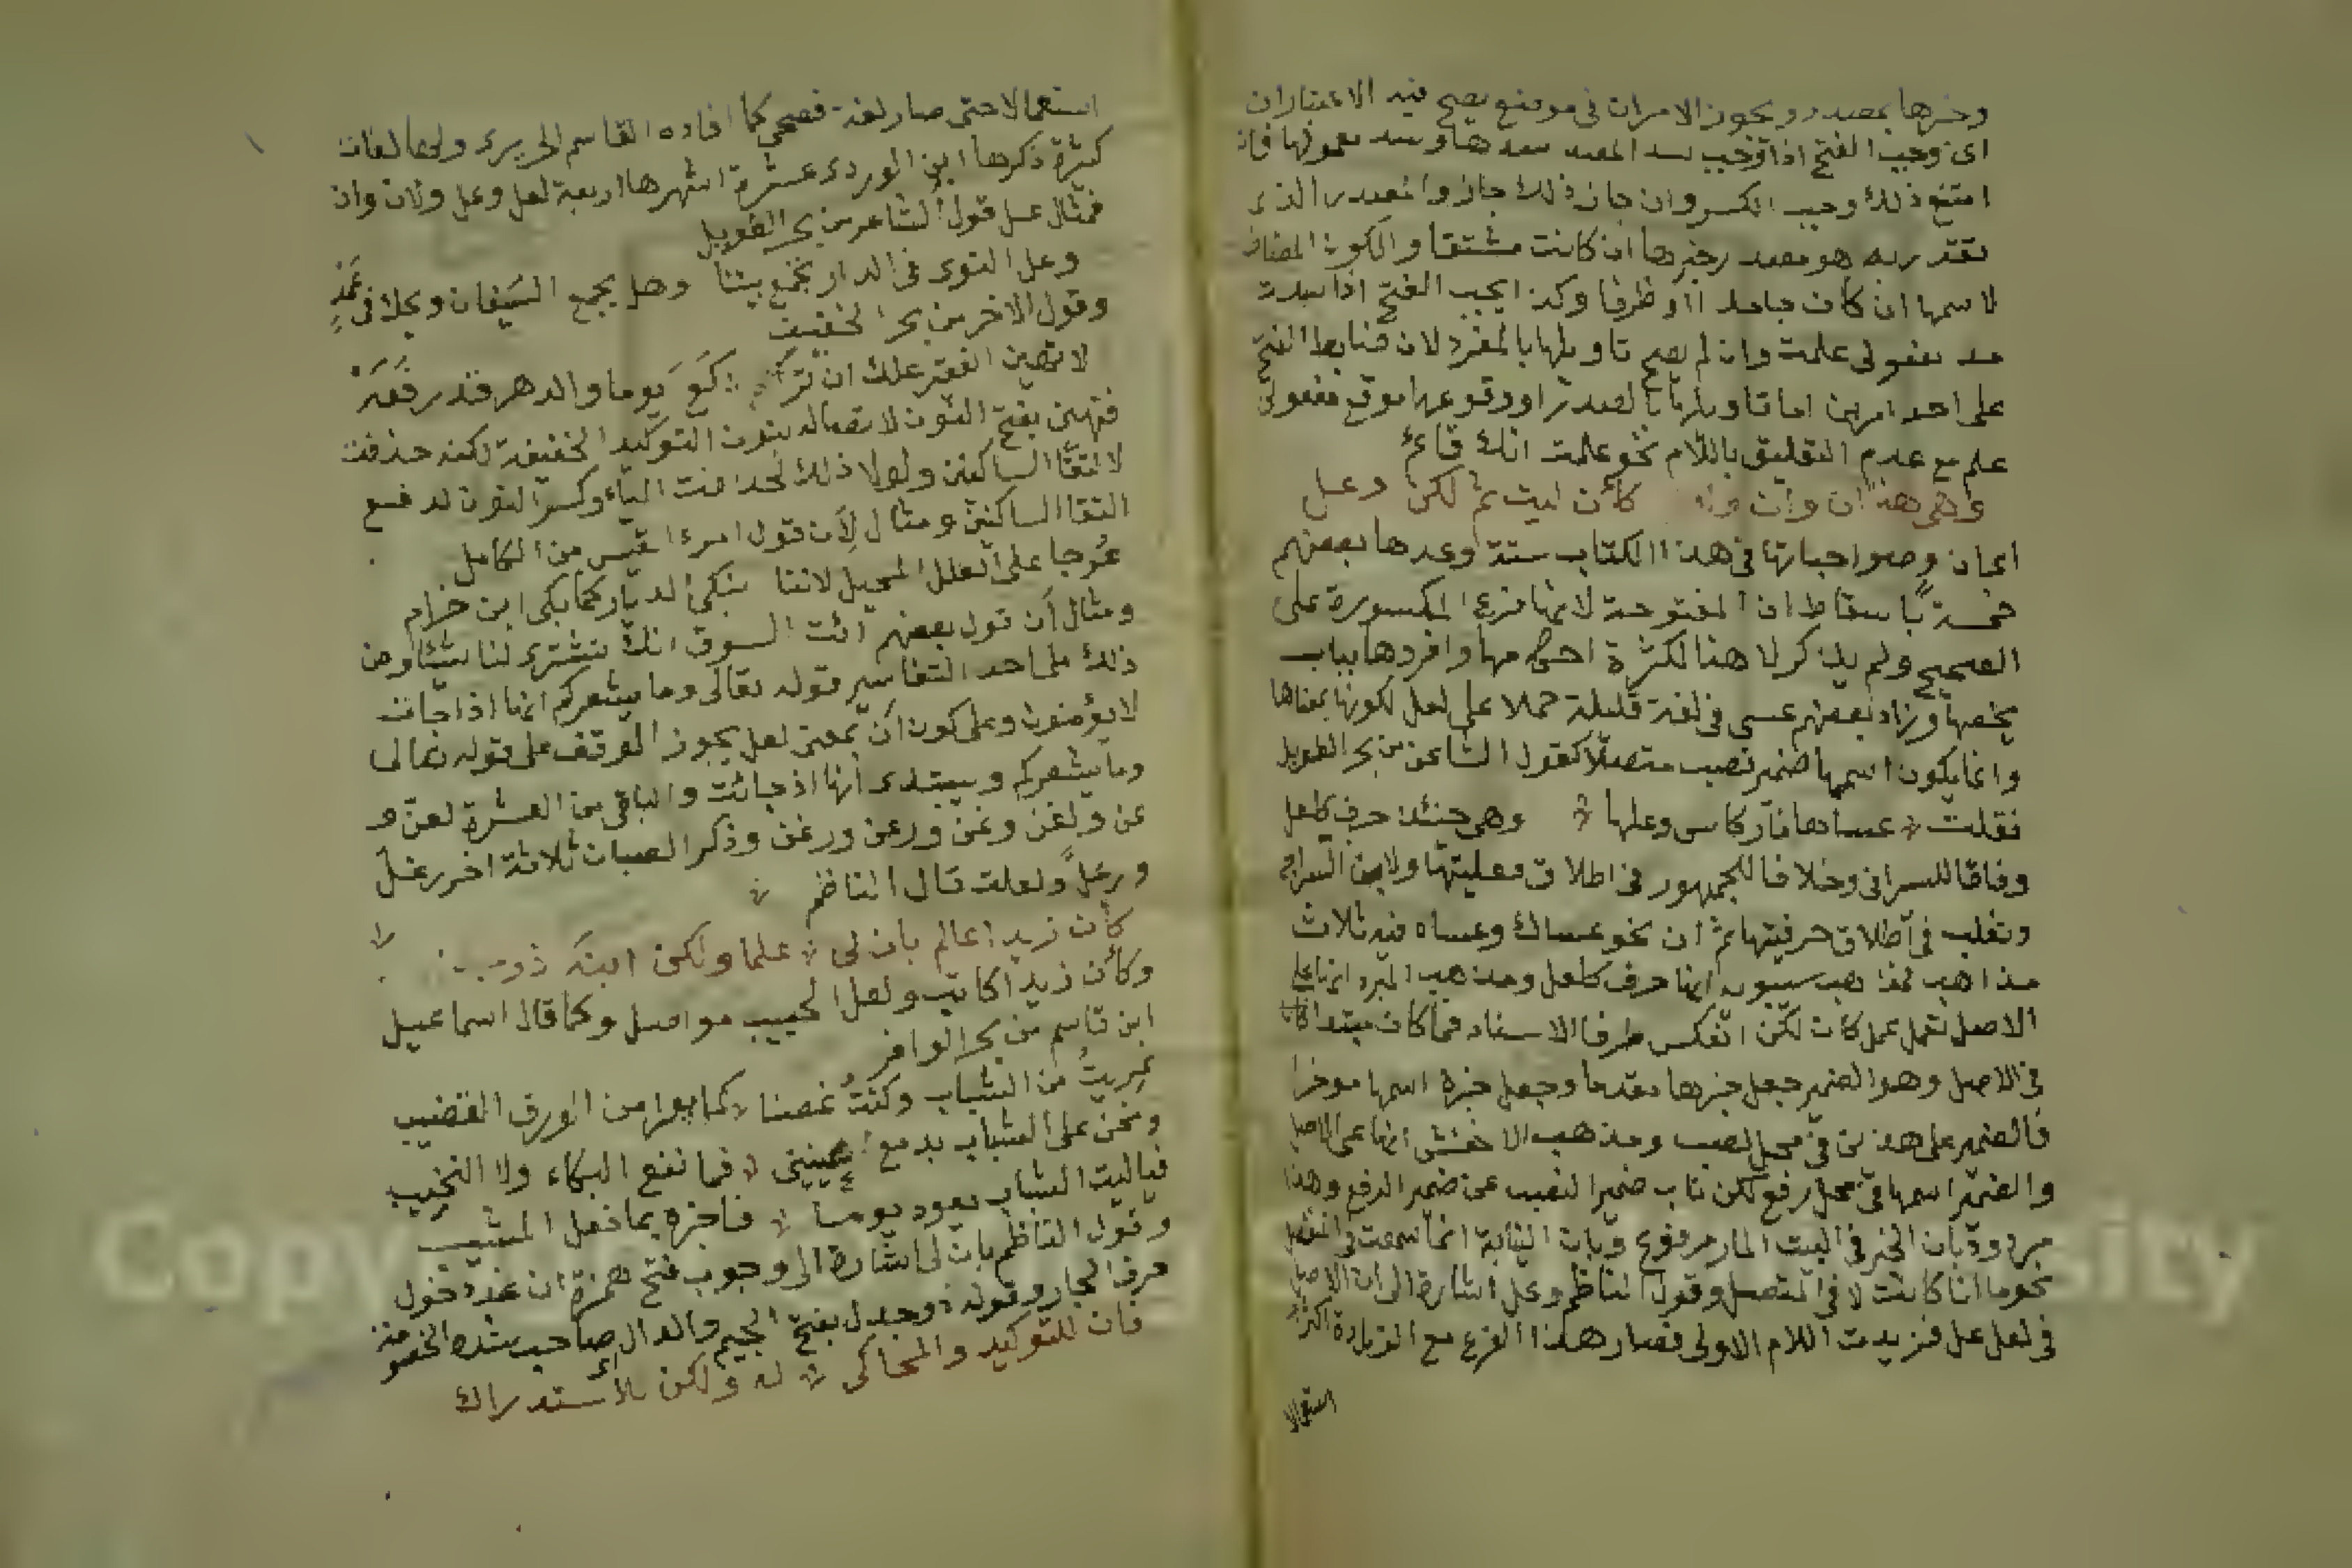 وخبرها بمصدر ويجوز الامران في موضع يصح فيه الاعتباران
اى وجب الفتح اذا وجب سد المصدر مسدها ومسد معموليها فان
امتنع ذلك وجب الكسر وان جاز ذلك جاز والمصدر الذى
تقدر به هو مصدر خبرها ان كانت مشتقا والكون المضاف
لاسمها ان كان جامدا او ظرفا وكذا يجب الفتح اذا سدت
مسد مفعولى علمت وان لم يصح تاويلها بالمفرد لان ضابط الفتح
على احد امرين اما تاويلها بالمصدر او وقوعها موقع مفعولى
علم مع عدم التعليق باللام نحو علمت انك قائم
وهى هذه ان وان كأن ليت ثم لكن وعل
وصواحباتها فى هذا الكتاب ستة وعدها بعضهم
خمسة باسقاط ان المفتوحة لانها فرع المكسورة على
الصحيح ولم يذكر لا هنا لكثرة احكامها وافردها بباب
يخصها وزاد بعضهم عسى فى لغة قليلة حملا على لعل لكونها بمعناها
وانما يكون اسمها ضمير نصب متصلا كقول الشاعر من بحر الطويل
فقلت عساها نار كاس وعلها وهى حينئذ حرف كلعل
وفاقا للسيرافى وخلافا للجمهور فى اطلاق فعليتها ولابن السراج
وثعلب فى اطلاق حرفيتها ثم ان نحو عساك وعساه فيه ثلاث
مذاهب مذهب سيبويه انها حرف كلعل ومذهب المبرد انها على
الاصل تعمل عمل كان لكن انعكس طرفا الاسناد فما كان مبتدا
فى الاصل وهو الضمير جعل خبرها مقدما وجعل خبره اسمها موخرا
فالضمير على هذين فى محل نصب ومذهب الاخفش انها على الاصل
والضمير اسمها فى محل رفع لكن ناب ضمير النصب عن ضمير الرفع وهذا
مردود بان الخبر فى البيت المار مرفوع وبان النيابة انما سمعت فى المنفصل
نحو ما انا كانت لا فى المتصل وقول الناظم وعل اشارة الى ان الاصل
فى لعل عل فزيدت اللام الاولى فصار هذا الفرع مع الزيادة اكثر
استعمالا
استعمالا حتى صار لغة فصحى كما افاده القاسم الحريرى ولها لغات
كثيرة ذكرها ابن الوردى عشرة اشهرها اربعة لعل وعل ولان وان
فمثال عل قول الشاعر من بحر الطويل
وعل النوى فى الدار تجمع بيننا وهل يجمع السيفان ويحك فى غمد
وقول الاخر من بحر الخفيف
لا تهين الفقير علك ان تركع يوما والدهر قد رفعه
فتهين بفتح النون لاتصاله بنون التوكيد الخفيفة لكنه حذفت
لالتقا الساكنين ولولا ذلك لحذفت الياء وكسر النون لدفع
التقا الساكنين ومثال لأن قول امرء القيس من الكامل
عوجا على الطلل المحيل لاننا نبكى الديار كما بكى ابن خزام
ومثال أن قول بعضهم ائت السوق انك تشترى لنا شيئا ومن
ذلك على احد التفاسير قوله تعالى وما يشعركم انها اذا جات
لا يؤمنون وعلى كون ان بمعنى لعل يجوز الوقف على قوله تعالى
وما يشعركم ويبتدى أنها اذ جائت والباقى من العشرة لعن و
عن ولغن وغن ورعن ورغن وذكر الصبان ثلاثة اخر رغل
ورعل ولعلت قال الناظم
كأن زيدا عالم بان لى علما ولكن ابنه ذو
وكأن زيدا كاتب ولعل الحبيب مواصل وكما قال اسماعيل
ابن قاسم من بحر الوافر
عريت من الشباب وكنت غصنا كما يعرا من الورق القضيب
ونحن على الشباب بدمع عينى فما نفع البكاء ولا النحيب
فياليت الشباب يعود يوما فاخبره بما فعل المشيب
وقول الناظم بان لى اشارة الى وجوب فتح همزة ان عند دخول
حرف الجار وقوله ذو جدل بفتح الجيم والدال صاحب شدة الخصومة
فان للتوكيد والمحاكى له ولكن للاستدراك
Copy
sity